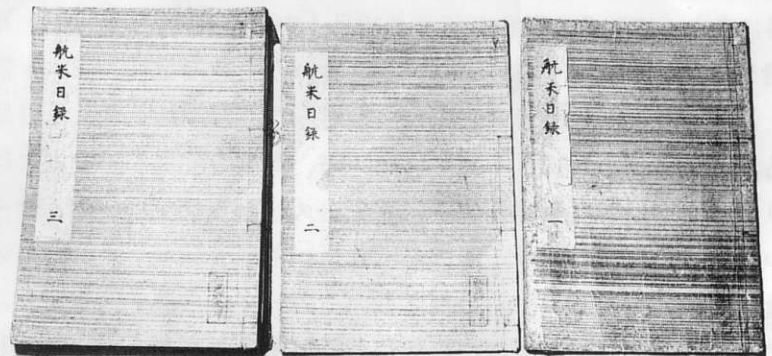 航米日録
一
航米日録
二
航米日録
三